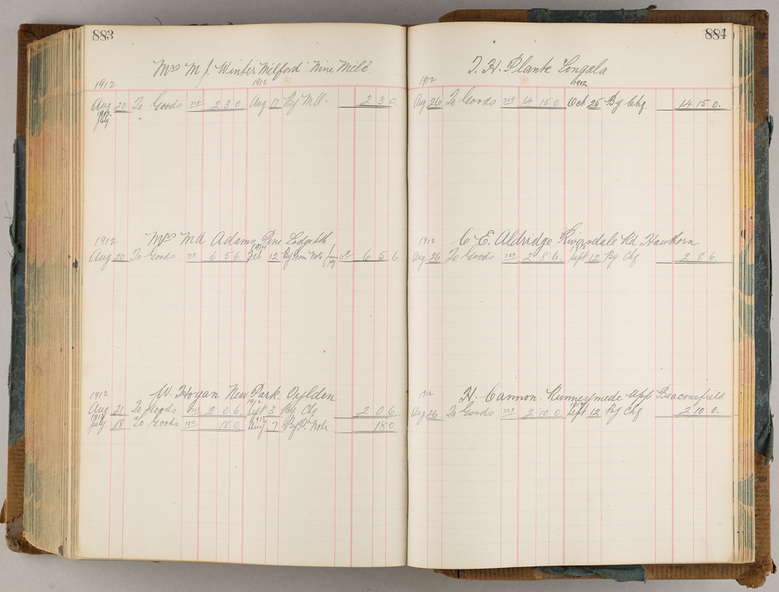 883
Mrs M J. Winter Milford Nine Mile
1912 1912
Aug 20 To Goods 2 3 0 Aug 17 By M.O. 2 3 0
July
1912 Mrs M A Adams Pine Lodge
Aug 20 To Goods 6 5 6 Feb 12 By Prom Note 6 5 6
1912 W. Hogan New Park
Aug 21 To Goods 2 0 6 Sept 3 By Chq 2 0 6
July 18 To Goods 18 0 Aug 7 By P. Note 18 0
884
T. H. Plante Longala
1912 1912
Aug 26 To Goods 14 15 0 Oct 25 By Chq 14 15 0
1912 C E. Aldridge Riversdale Rd Hawthorn
Aug 26 To Goods 2 8 6 Sept 12 By Chq 2 8 6
1912 H. Cannon Runneymede Upp Beaconsfield
Aug 26 To Goods 2 10 0 Sept 12 By Chq 2 10 0